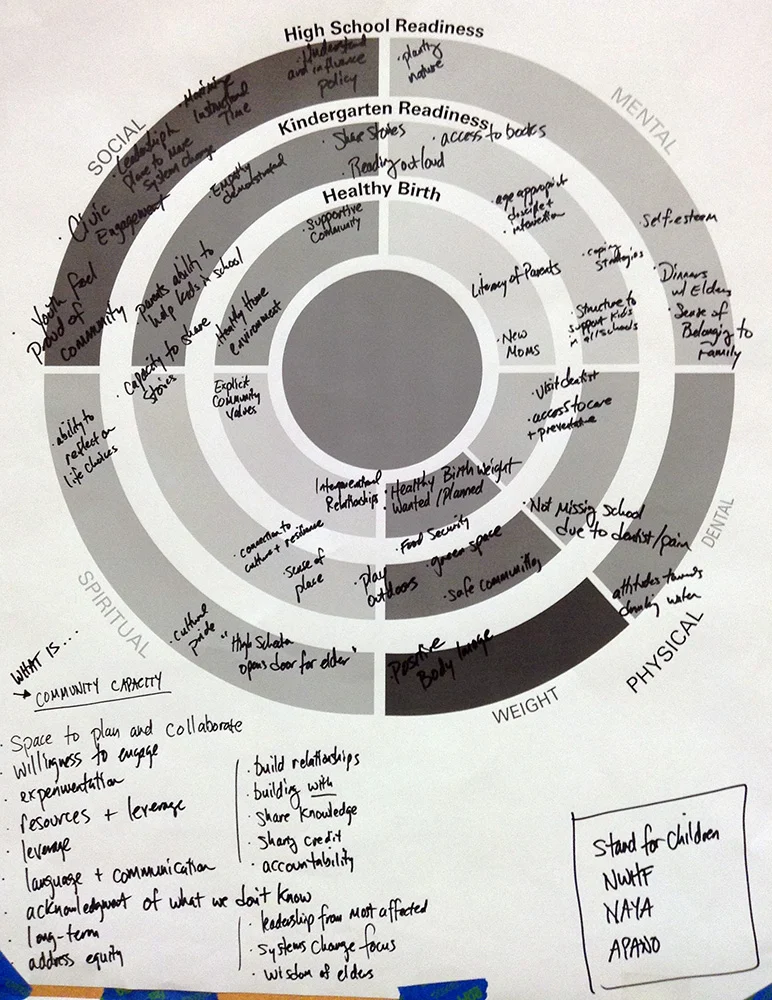 High School Readiness
Understand
and influence
policy
• planting
nature
• Maximize
Instructional
Time
SOCIAL
MENTAL
Kindergarten Readiness
• Leadership
Place to Move
System change
• Empathy
demonstrated
• Share Stories
• Reading out loud
• access to books
• Civic
Engagement
Healthy Birth
• Supportive
Community
• age appropriate
+
intervention
• Self-esteem
• coping
strategies
• Youth feel
Proud of
Community
• Parents ability to
help kids in school
• Healthy Home
environment
Literacy of Parents
• Dinners
w/ Elders
• Structure to
support kids
in all schools
• Sense of
Belonging to
Family
• Capacity to share
stories
• New
Moms
Explicit
Community
Values
• Visit dentist
• access to care
+ preventative
• ability to
reflect on
life choices
Intergenerational
Relationships
• Healthy Birth weight
• Wanted/Planned
• Not Missing School
due to dentist/pain
DENTAL
• connection to
culture + resilience
• Food Security
• green space
• sense of
place
• Play
outdoors
• safe community
attitudes towards
drinking water
PHYSICAL
SPIRITUAL
• cultural
pride
"High Schooler
opens door for elder"
Positive
Body Image
WEIGHT
WHAT IS....
→ COMMUNITY CAPACITY
• Space to plan and collaborate
• willingness to engage
• experimentation
• resources + leverage
• leverage
• language + communication
• acknowledgment of what we don't know
• long-term
• address equity
• build relationships
• building with
• share knowledge
• sharing credit
• accountability
• leadership from most affected
• systems change focus
• wisdom of elders
Stand for Children
NWHF
NAYA
APANO